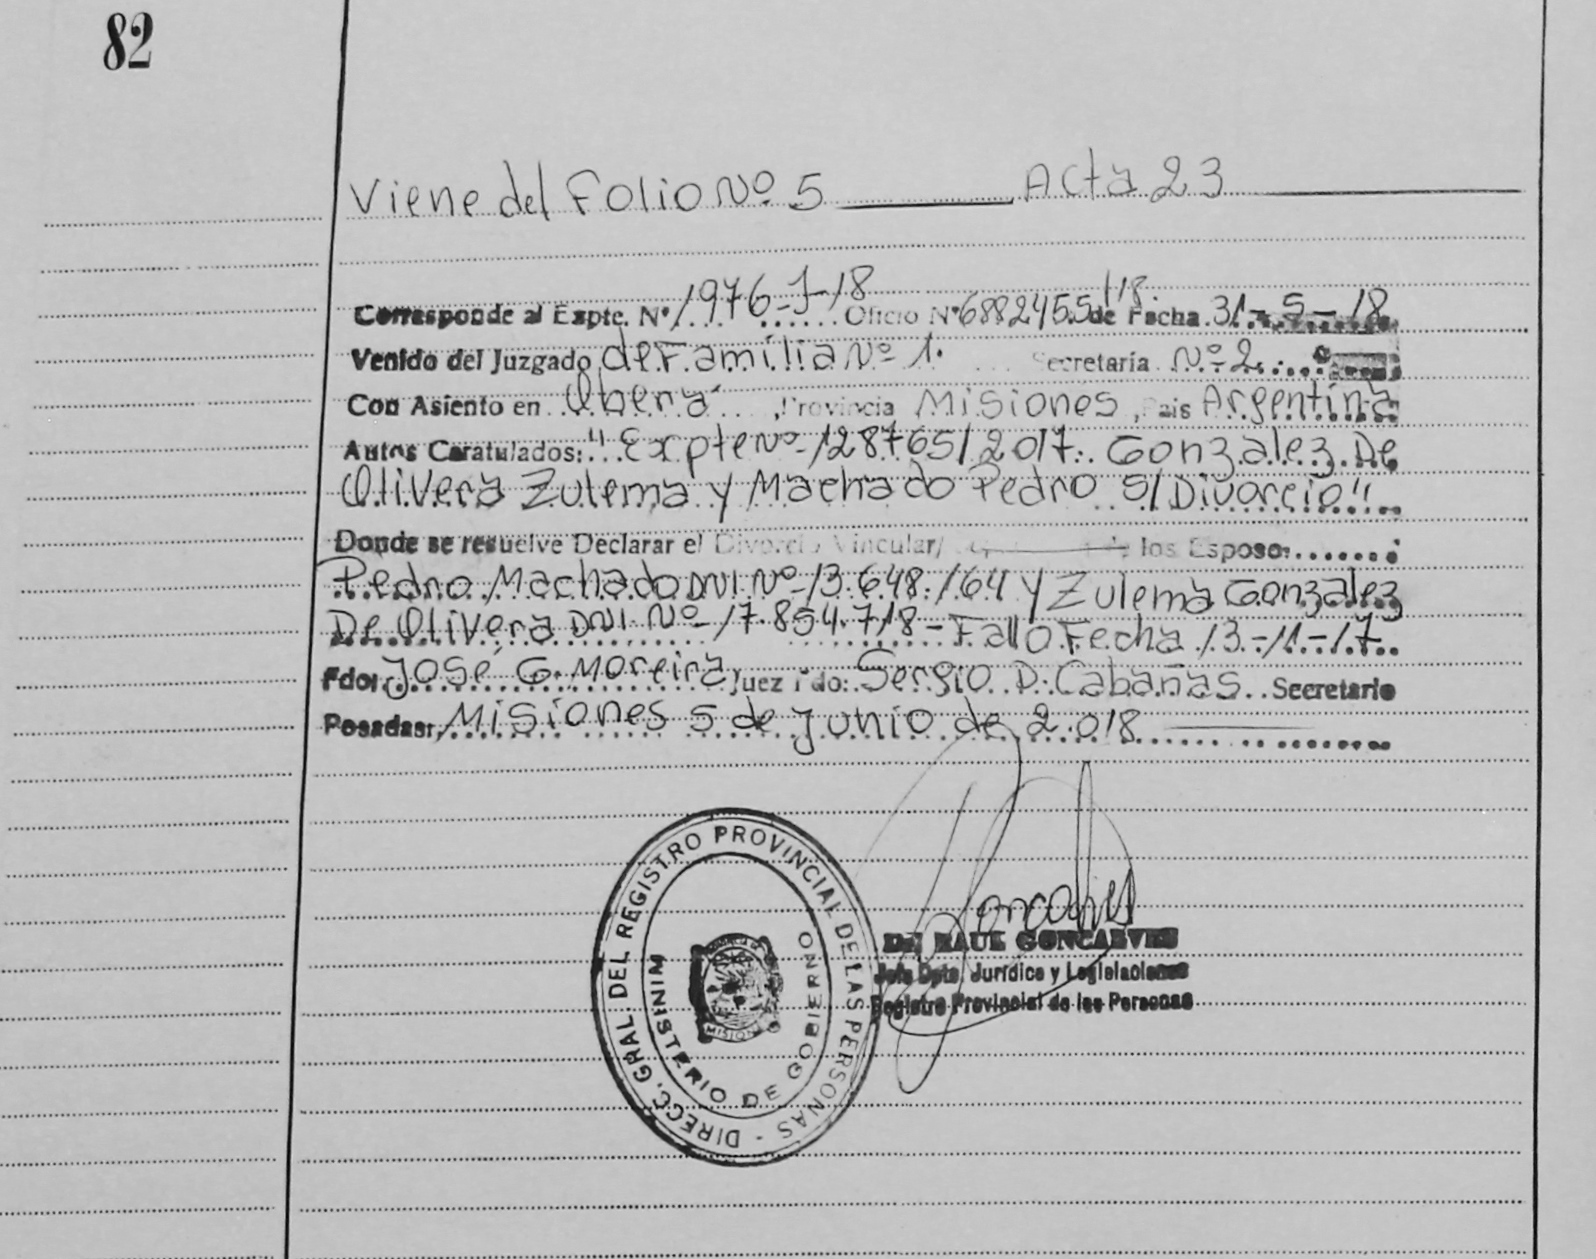 82
Viene del Folio Nº 5 Acta 23
Corresponde al Expte. Nº 1976-J-18 Oficio Nº 6882455/18 de Fecha 31-5-18
Venido del Juzgado de Familia Nº 1. Secretaría Nº 2
Con Asiento en Oberá, Provincia Misiones, Pais Argentina
Autos Caratulados: "Expte Nº 128765/2017. Gonzalez De
Olivera Zulema y Machado Pedro S/ Divorcio"
Donde se resuelve Declarar el Divorcio Vincular/ los Esposos
Pedro Machado DNI Nº 13.648.164 y Zulema Gonzalez
De Olivera DNI Nº 17.854.718 - Fallo Fecha 13-11-17
Fdo: José G. Moreira Juez Fdo: Sergio D. Cabañas Secretario
Posadas, Misiones 5 de Junio de 2.018
DIRECC. GRAL. DEL REGISTRO PROVINCIAL DE LAS PERSONAS -
MINISTERIO DE GOBIERNO
RAUL GONCALVES
Jefe Dpto. Jurídico y Legislaciones
Registro Provincial de las Personas